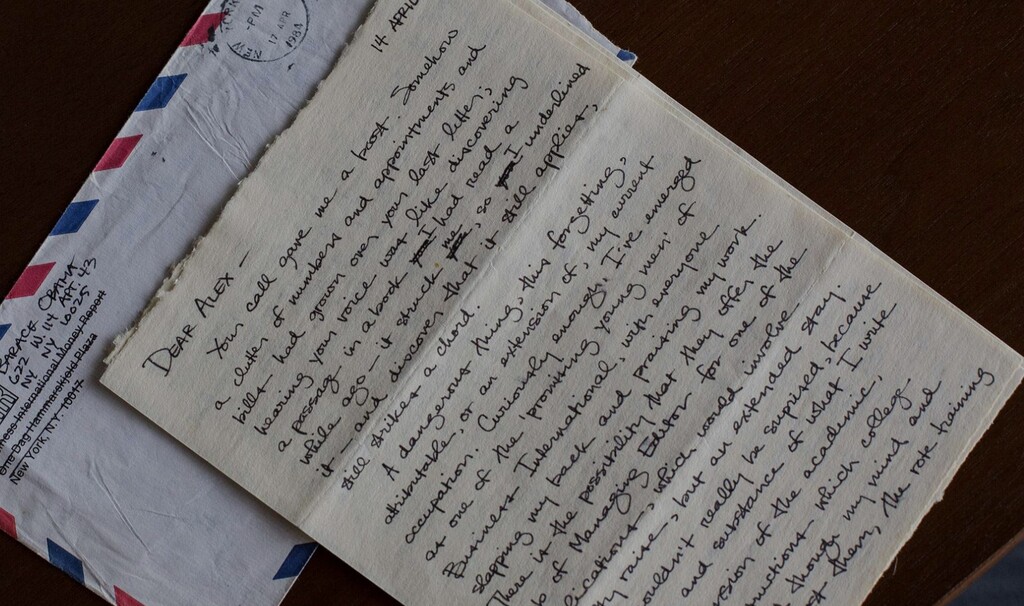 PM
17 APR
1984
BARACK OBAMA
622 W. 114 APT. 43
NY NY 10025
Business International Money Report
One Dag Hammarskjold Plaza
New York, N.Y. 10017
14 APRIL
DEAR ALEX -
Your call gave me a boost. Somehow
a clutter of numbers and appointments and
bills had grown over your last letter;
hearing your voice was like discovering
a passage in a book I had read a
while ago - it struck me, so I underlined
it - and discover that it still applies,
still strikes a chord.
A dangerous thing, this forgetting,
attributable, or an extension of, my current
occupation. Curiously enough, I've emerged
as one of the 'promising young men' of
Business International, with everyone
slapping my back and praising my work.
There is the possibility that they offer the
of Managing Editor for one of the
which would involve
raise, but an extended stay.
really be surprised, because
and substance of what I write
version of the academic,
which colleg
though my mind and
them, the rote training